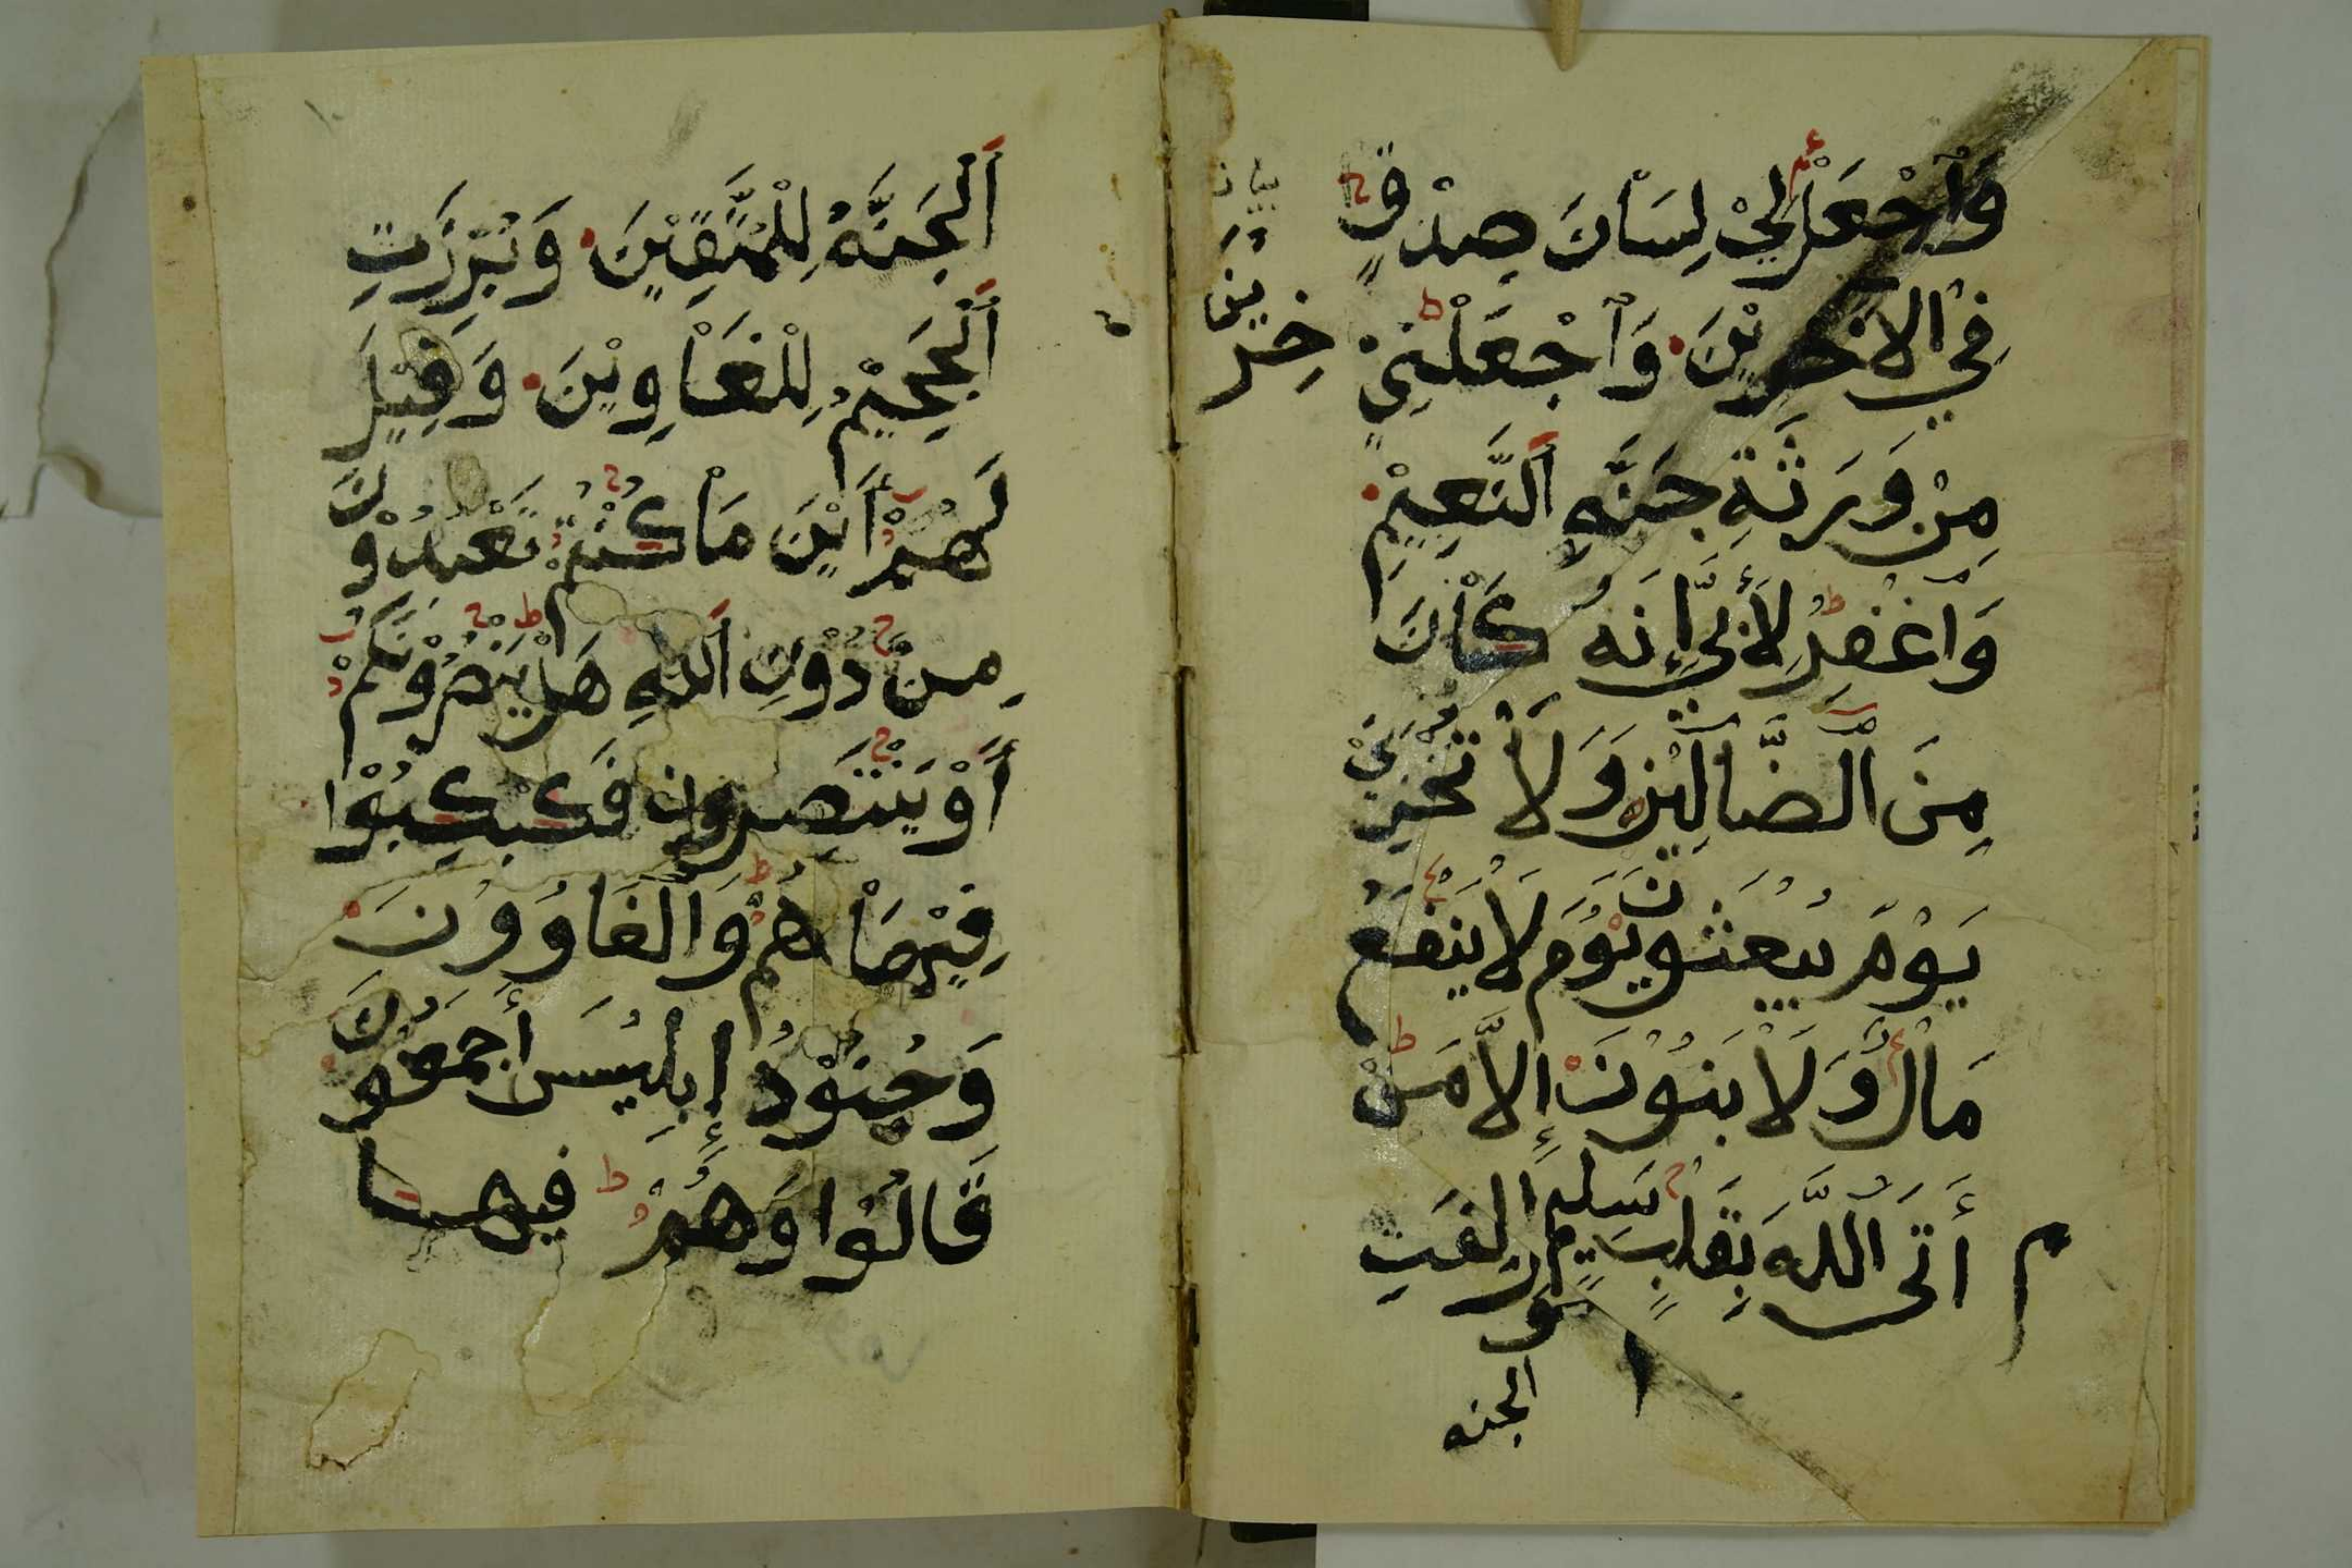 وَٱجْعَلْ لِيْ لِسَاْنَ صِدْقٍ
فِي الْاٰخِرِيْنَ وَٱجْعَلْنِيْ
خِرِيْنَ
مِنْ وَرَثَةِ جَنَّةِ ٱلنَّعِيْمِ
وَٱغْفِرْ لِأَبِيْ إِنَّهُ كَاْنَ
مِنَ ٱلضَّآلِّيْنَ وَلَاْ تُخْزِنِيْ
يَوْمَ يُبْعَثُونَ يَوْمَ لَاْ يَنْفَعُ
مَاْلٌ وَلَاْ بَنُوْنَ إِلَّا مَنْ
أَتَى اللَّهَ بِقَلْبٍ سَلِيْمٍ وَأُزْلِفَتِ
م
الجنه
ٱلْجَنَّةُ لِلْمُتَّقِيْنَ وَبُرِّزَتِ
ٱلْجَحِيْمُ لِلْغَاْوِيْنَ وَقِيْلَ
لَهُمْ أَيْنَ مَاْ كُنْتُمْ تَعْبُدُوْنَ
مِنْ دُوْنِ ٱللهِ هَلْ يَنْصُرُوْنَكُمْ
أَوْ يَنْتَصِرُونَ فَكُبْكِبُوْا
فِيْهَاْ هُمْ وَالْغَاوُوُنَ
وَجُنُوْدُ إِبْلِيْسَ أَجْمَعُوْنَ
قَالُوْا وَهُمْ فيها